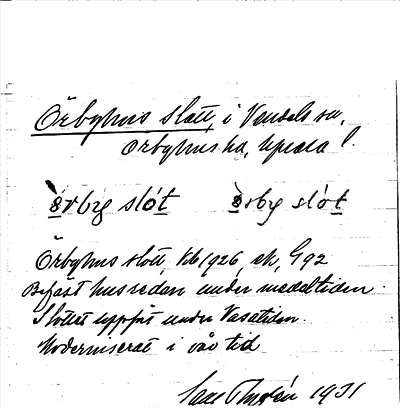 Örbyhus slott, i Vendels sn,
Örbyhus hd, Upsala l.
örby slót örby slót
Örbyhus slott, kb 1926, ek, G 92
Befäst hus redan under medeltiden.
Slottet uppfört under Vasatiden.
Moderniserat i vår tid
1931